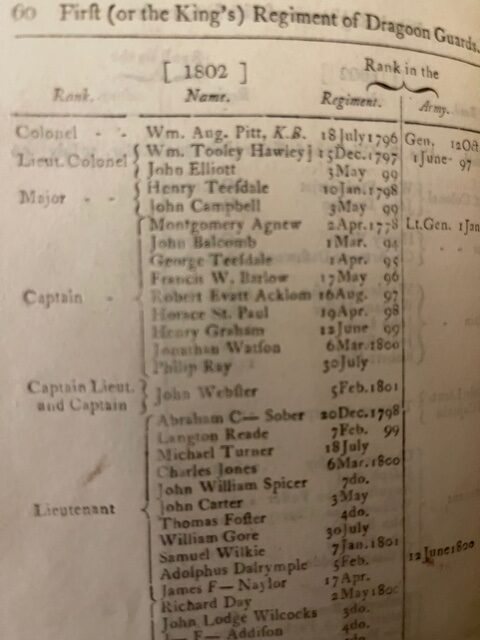 60 Firſt (or the King's) Regiment of Dragoon Guards.
[ 1802 ] Rank in the
Rank. Name. Regiment. Army.
Colonel - - Wm. Aug. Pitt, K.B. 18 July 1796 Gen. 12 Oct
Lieut. Colonel { Wm. Tooley Hawley 15 Dec. 1797 1 June 97
John Elliott 3 May 99
Major - { Henry Teeſdale 10 Jan. 1798
John Campbell 3 May 99
Montgomery Agnew 2 Apr. 1778 Lt. Gen. 1 Jan
John Balcomb 1 Mar. 94
George Teeſdale 1 Apr. 95
Francis W. Barlow 17 May 96
Captain - { Robert Evatt Acklom 16 Aug. 97
Horace St. Paul 19 Apr. 98
Henry Graham 12 June 99
Jonathan Watſon 6 Mar. 1800
Philip Ray 30 July
Captain Lieut. and Captain } John Webſter 5 Feb. 1801
Abraham C— Sober 20 Dec. 1798
Langton Reade 7 Feb. 99
Michael Turner 18 July
Charles Jones 6 Mar. 1800
John William Spicer 7 do.
Lieutenant { John Carter 3 May
Thomas Foſter 4 do.
William Gore 30 July
Samuel Wilkie 7 Jan. 1801 12 June 1800
Adolphus Dalrymple 5 Feb.
James F— Naylor 17 Apr.
Richard Day 2 May
John Lodge Wilcocks 3 do.
F— Addiſon 4 do.